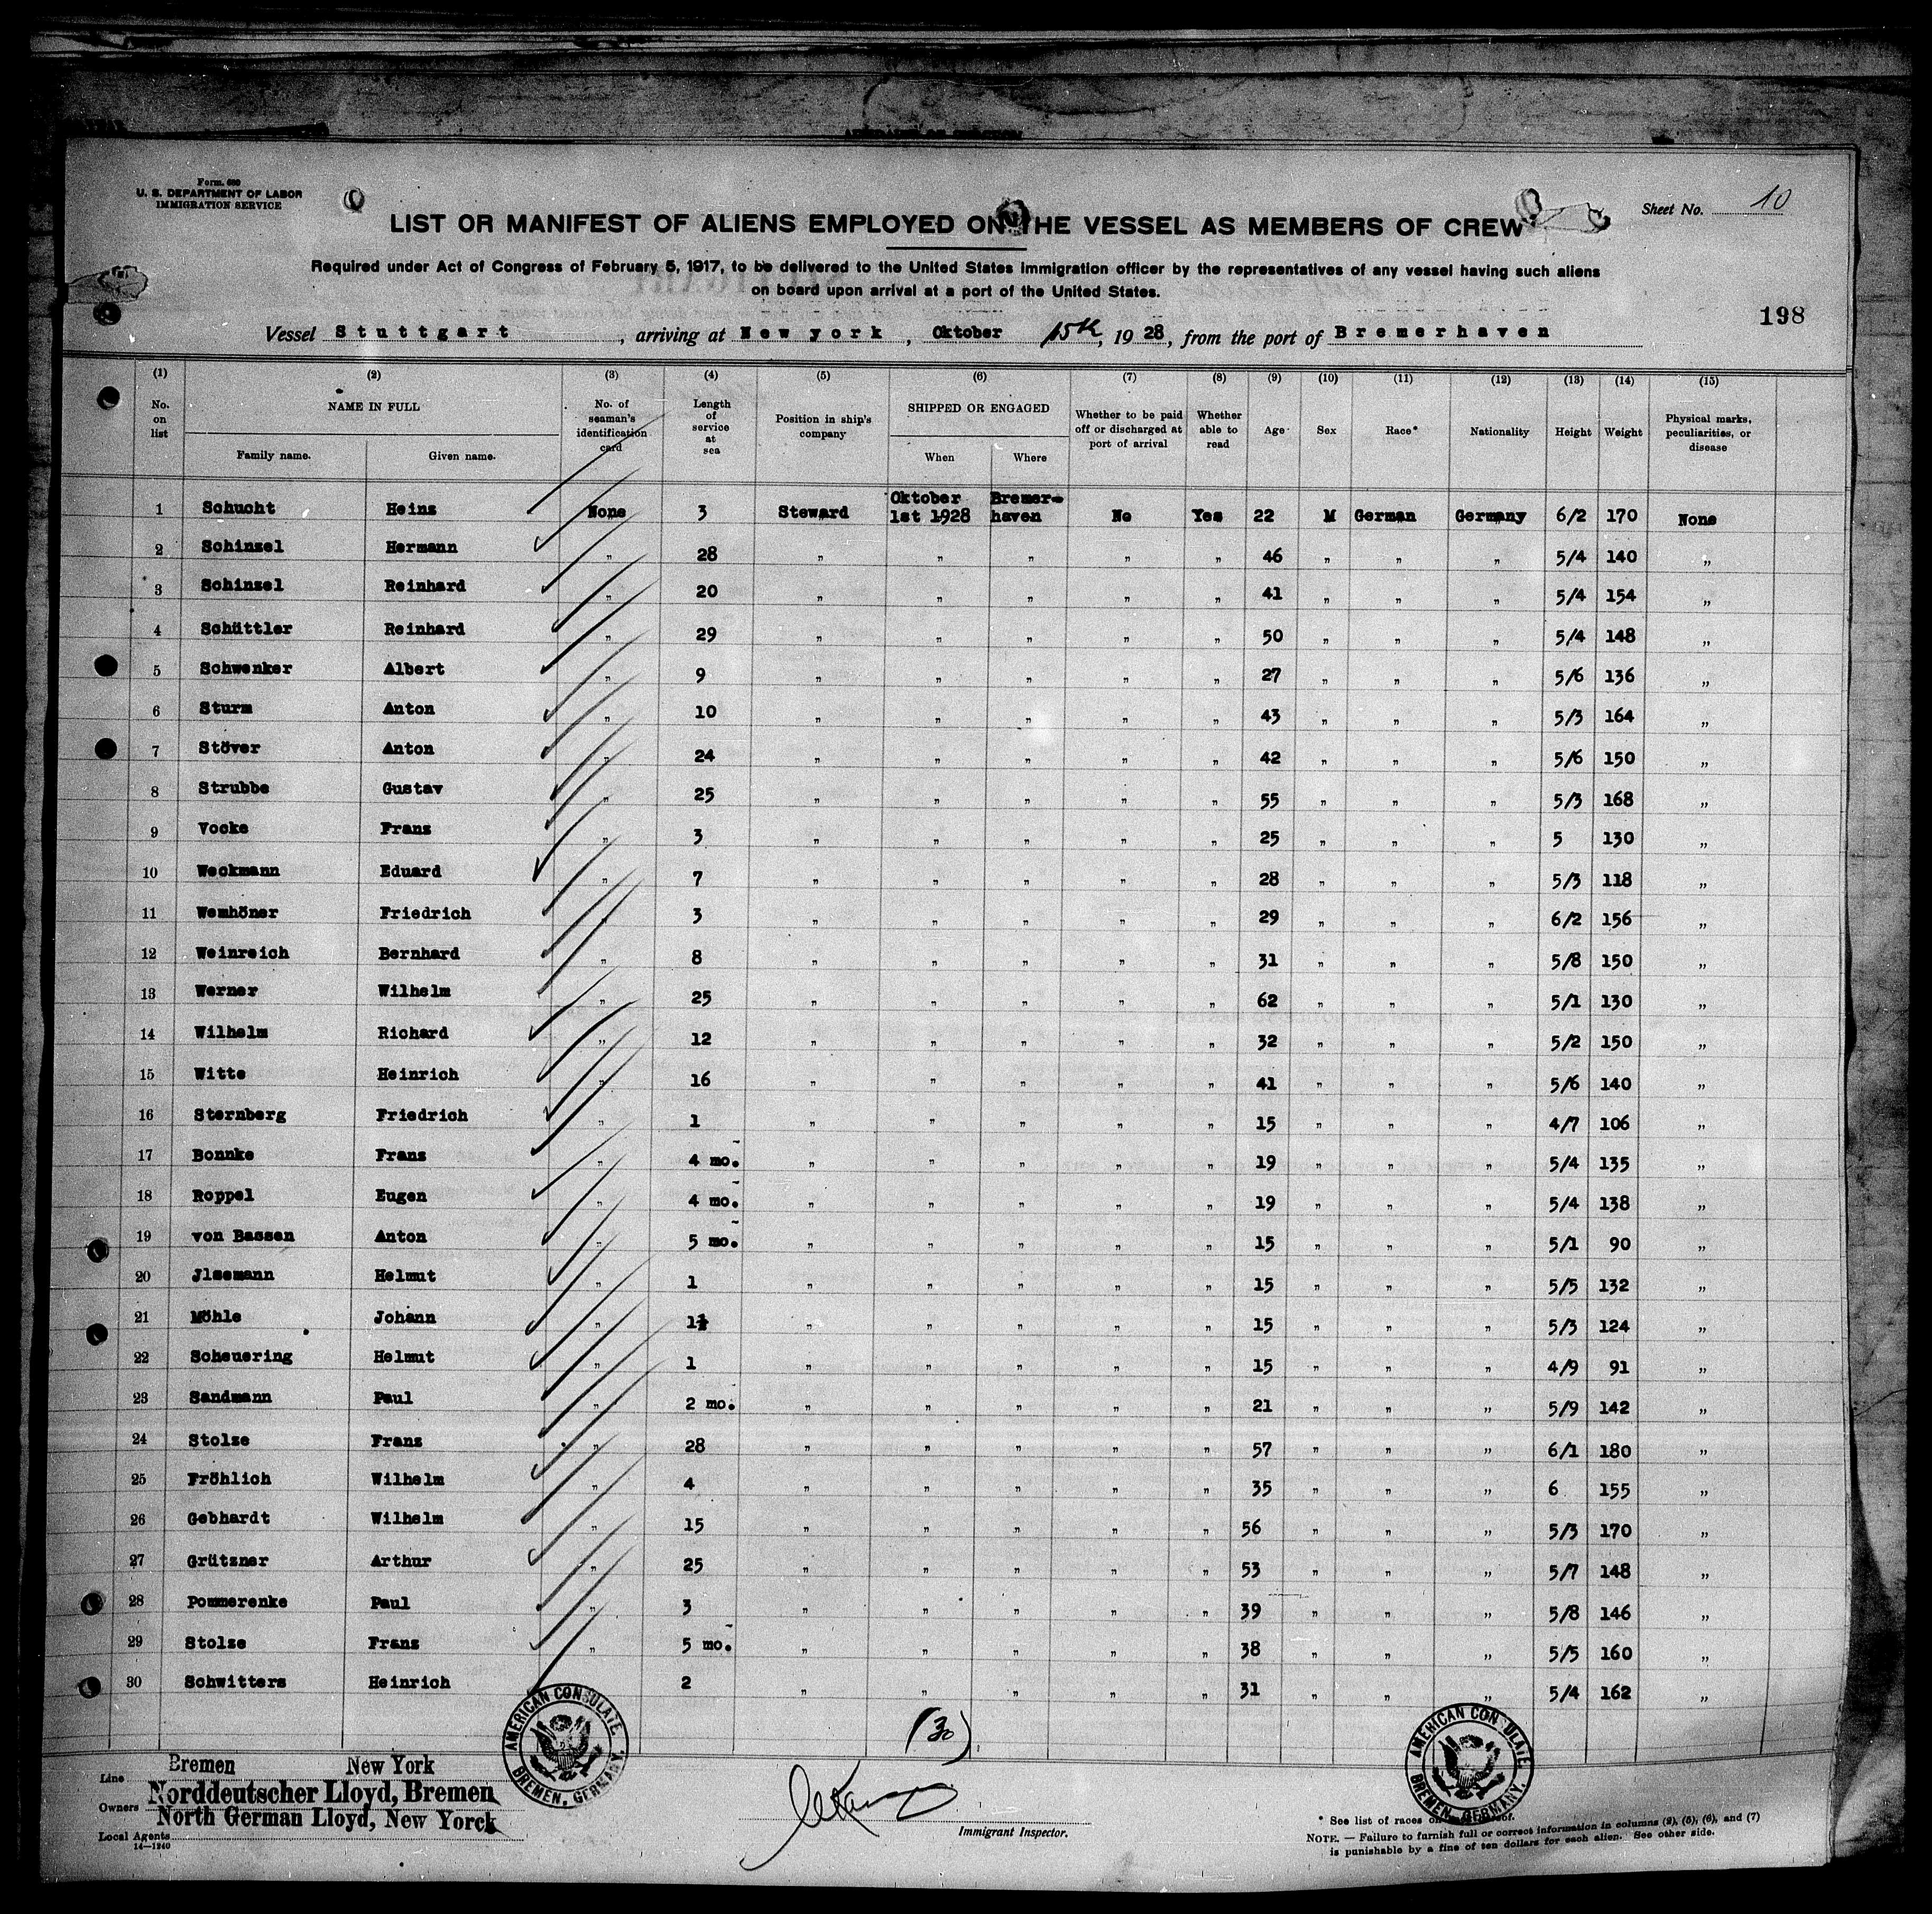 Form. 689
U. S. DEPARTMENT OF LABOR
IMMIGRATION SERVICE
Sheet No. 10
LIST OR MANIFEST OF ALIENS EMPLOYED ON THE VESSEL AS MEMBERS OF CREW
Required under Act of Congress of February 5, 1917, to be delivered to the United States immigration officer by the representatives of any vessel having such aliens
on board upon arrival at a port of the United States.
198
Vessel Stuttgart, arriving at New york, Oktober 15th, 1928, from the port of Bremerhaven
(1) (2) (3) (4) (5) (6) (7) (8) (9) (10) (11) (12) (13) (14) (15)
No. on list NAME IN FULL No. of seaman's identification card Length of service at sea Position in ship's company SHIPPED OR ENGAGED Whether to be paid off or discharged at port of arrival Whether able to read Age Sex Race* Nationality Height Weight Physical marks, peculiarities, or disease
Family name. Given name. When Where
1 Schucht Heinz None 3 Steward Oktober 1st 1928 Bremer-haven No Yes 22 M German Germany 6/2 170 None
2 Schinzel Hermann " 28 " " " " " 46 " " " 5/4 140 "
3 Schinzel Reinhard " 20 " " " " " 41 " " " 5/4 154 "
4 Schüttler Reinhard " 29 " " " " " 50 " " " 5/4 148 "
5 Schwenker Albert " 9 " " " " " 27 " " " 5/6 136 "
6 Sturm Anton " 10 " " " " " 43 " " " 5/3 164 "
7 Stöver Anton " 24 " " " " " 42 " " " 5/6 150 "
8 Strubbe Gustav " 25 " " " " " 55 " " " 5/3 168 "
9 Vocke Franz " 3 " " " " " 25 " " " 5 130 "
10 Weckmann Eduard " 7 " " " " " 28 " " " 5/3 118 "
11 Wemhöner Friedrich " 3 " " " " " 29 " " " 6/2 156 "
12 Weinreich Bernhard " 8 " " " " " 31 " " " 5/8 150 "
13 Werner Wilhelm " 25 " " " " " 62 " " " 5/1 130 "
14 Wilhelm Richard " 12 " " " " " 32 " " " 5/2 150 "
15 Witte Heinrich " 16 " " " " " 41 " " " 5/6 140 "
16 Sternberg Friedrich " 1 " " " " " 15 " " " 4/7 106 "
17 Bonnke Franz " 4 mo. " " " " " 19 " " " 5/4 135 "
18 Roppel Eugen " 4 mo. " " " " " 19 " " " 5/4 138 "
19 von Bassen Anton " 5 mo. " " " " " 15 " " " 5/1 90 "
20 Jlsemann Helmut " 1 " " " " " 15 " " " 5/5 132 "
21 Möhle Johann " 1½ " " " " " 15 " " " 5/3 124 "
22 Scheuering Helmut " 1 " " " " " 15 " " " 4/9 91 "
23 Sandmann Paul " 2 mo. " " " " " 21 " " " 5/9 142 "
24 Stolze Franz " 28 " " " " " 57 " " " 6/1 180 "
25 Fröhlich Wilhelm " 4 " " " " " 35 " " " 6 155 "
26 Gebhardt Wilhelm " 15 " " " " " 56 " " " 5/3 170 "
27 Grützner Arthur " 25 " " " " " 53 " " " 5/7 148 "
28 Pommerenke Paul " 3 " " " " " 39 " " " 5/8 146 "
29 Stolze Franz " 5 mo. " " " " " 38 " " " 5/5 160 "
30 Schwitters Heinrich 2 " " " " " 31 " " " 5/4 162 "
(30)
AMERICAN CONSULATE. BREMEN, GERMANY.
AMERICAN CONSULATE BREMEN, GERMANY.
Line Bremen New York
Owners Norddeutscher Lloyd, Bremen
North German Lloyd, New Yorck
Local Agents
14—1240
Immigrant Inspector.
* See list of races on
NOTE. — Failure to furnish full or correct information in columns (2), (5), (6), and (7)
is punishable by a fine of ten dollars for each alien. See other side.